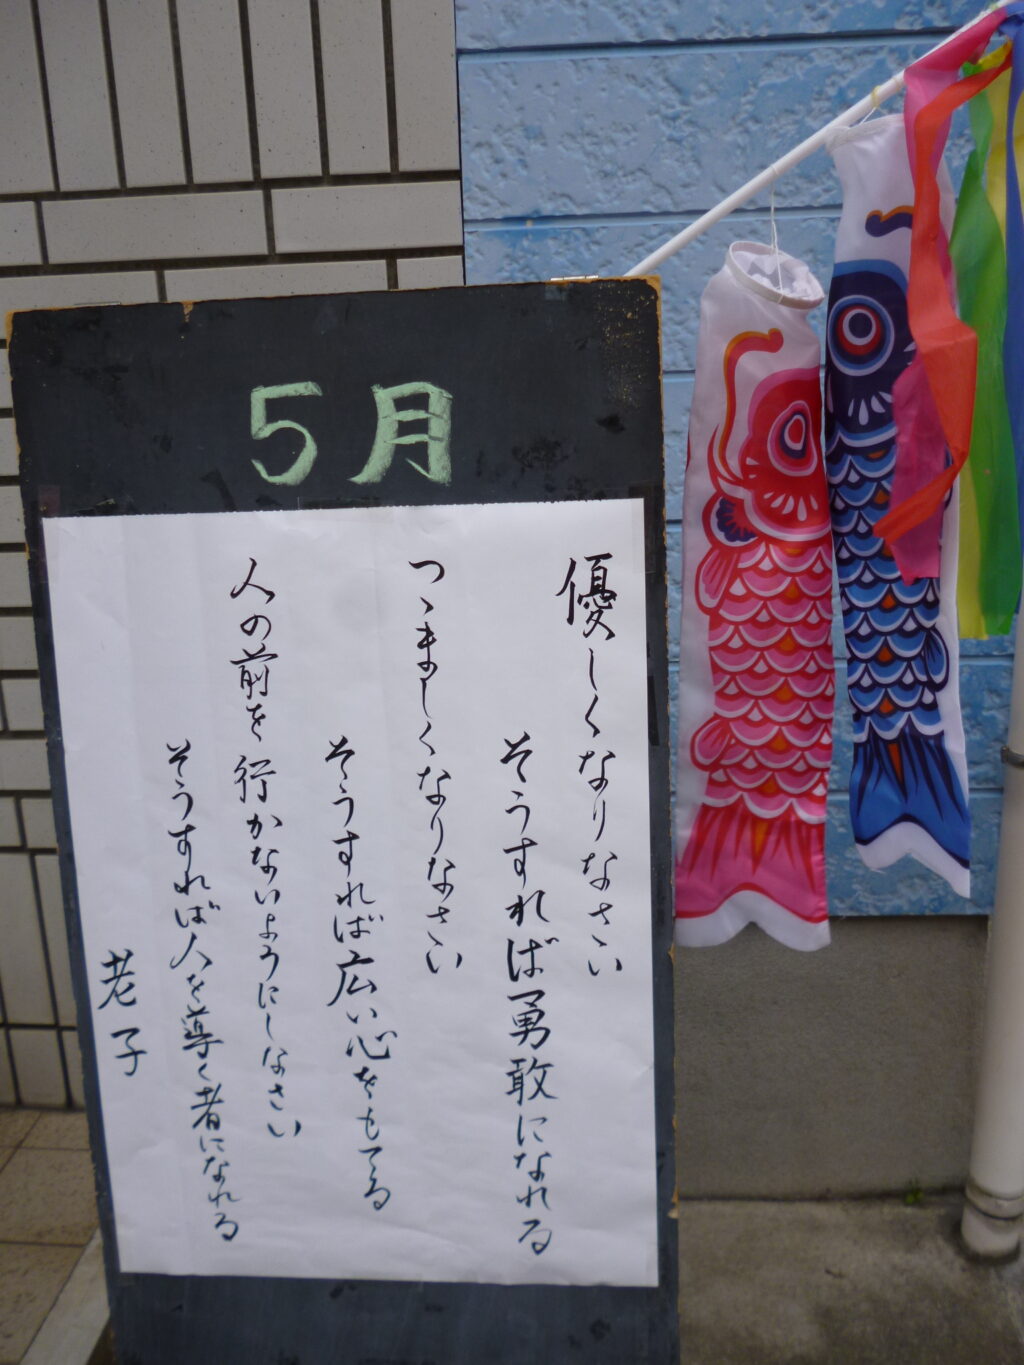 5月
優しくなりなさい
そうすれば勇敢になれる
つゝましくなりなさい
そうすれば広い心をもてる
人の前を行かないようにしなさい
そうすれば人を導く者になれる
老子